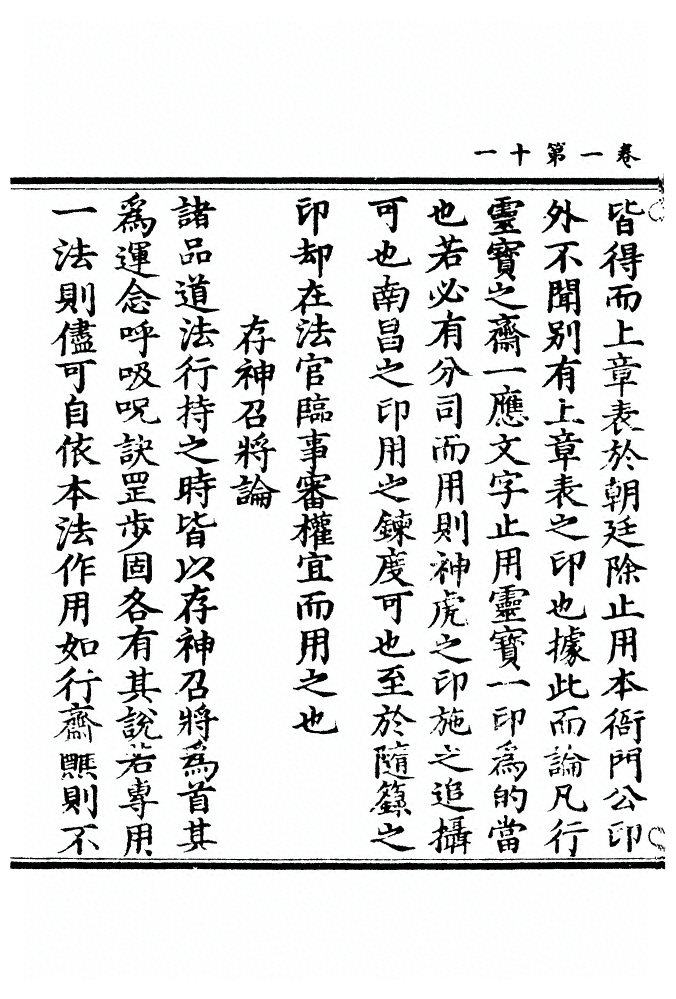 卷一第十一
皆得而上章表於朝廷除止用本衙門公印
外不聞別有上章表之印也據此而論凡行
靈寶之齋一應文字止用靈寶一印為的當
也若必有分司而用則神虎之印施之追攝
可也南昌之印用之鍊度可也至於隨籙之
印却在法官臨事審權宜而用之也
存神召將論
諸品道法行持之時皆以存神召將為首其
為運念呼吸呪訣罡步固各有其說若專用
一法則儘可自依本法作用如行齋醮則不